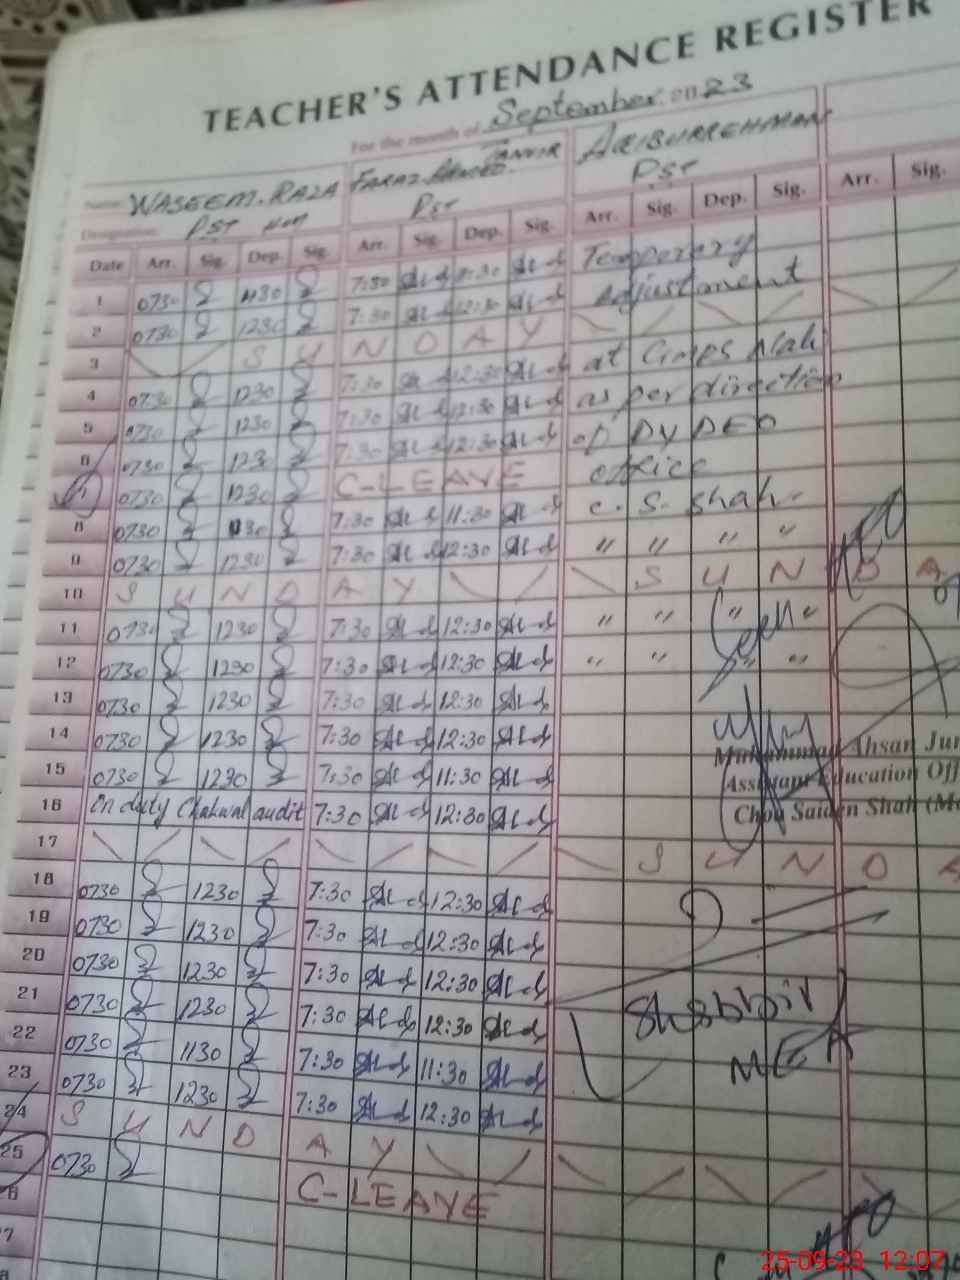 TEACHER'S ATTENDANCE REGISTER
For the month of September 2023
Name WASEEM. RAZA FARAZ AHMED TANVIR
Designation PST PST PST
Date Arr. Sig. Dep. Sig. Arr. Sig. Dep. Sig. Arr. Sig. Dep. Sig. Arr. Sig.
1 0730 1130 7:30 11:30 Temporery
2 0730 1230 7:30 12:30 Adjustment
3 SUNDAY
4 0730 1230 7:30 12:30 at
5 0730 1230 7:30 12:30 as per direction
6 0730 1230 7:30 12:30 of DY DEO
7 0730 1230 C-LEAVE office
8 0730 1130 7:30 11:30 C. S. Shah
9 0730 1230 7:30 12:30 " " " "
10 SUNDAY SUNDA
11 0730 1230 7:30 12:30 " " " "
12 0730 1230 7:30 12:30 " " " "
13 0730 1230 7:30 12:30
14 0730 1230 7:30 12:30
Muhammad Ahsan Jun
15 0730 1230 7:30 11:30
Assistant Education Off
16 On duty Chakwal audit 7:30 12:30
Choa Saiden Shah (M
17 SUNDA
18 0730 1230 7:30 12:30
19 0730 1230 7:30 12:30
20 0730 1230 7:30 12:30
21 0730 1230 7:30 12:30 Shabbir
22 0730 1130 7:30 11:30 MEA
23 0730 1230 7:30 12:30
24 SUNDAY
25 0730 C-LEAVE
25-09-23 12:07